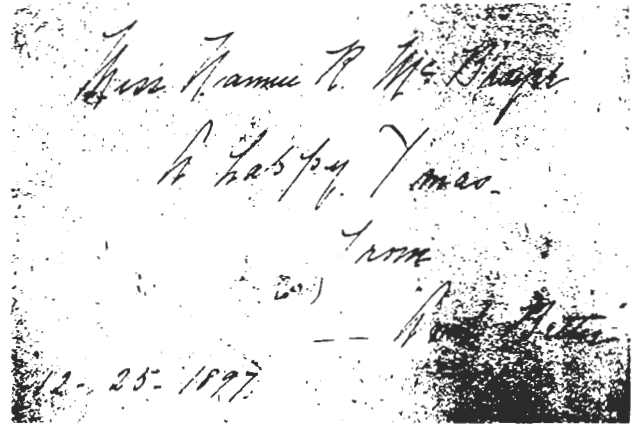 Miss Nannie R. Mc
A happy Xmas.
From
Aunt Bettie
12-25-1897.